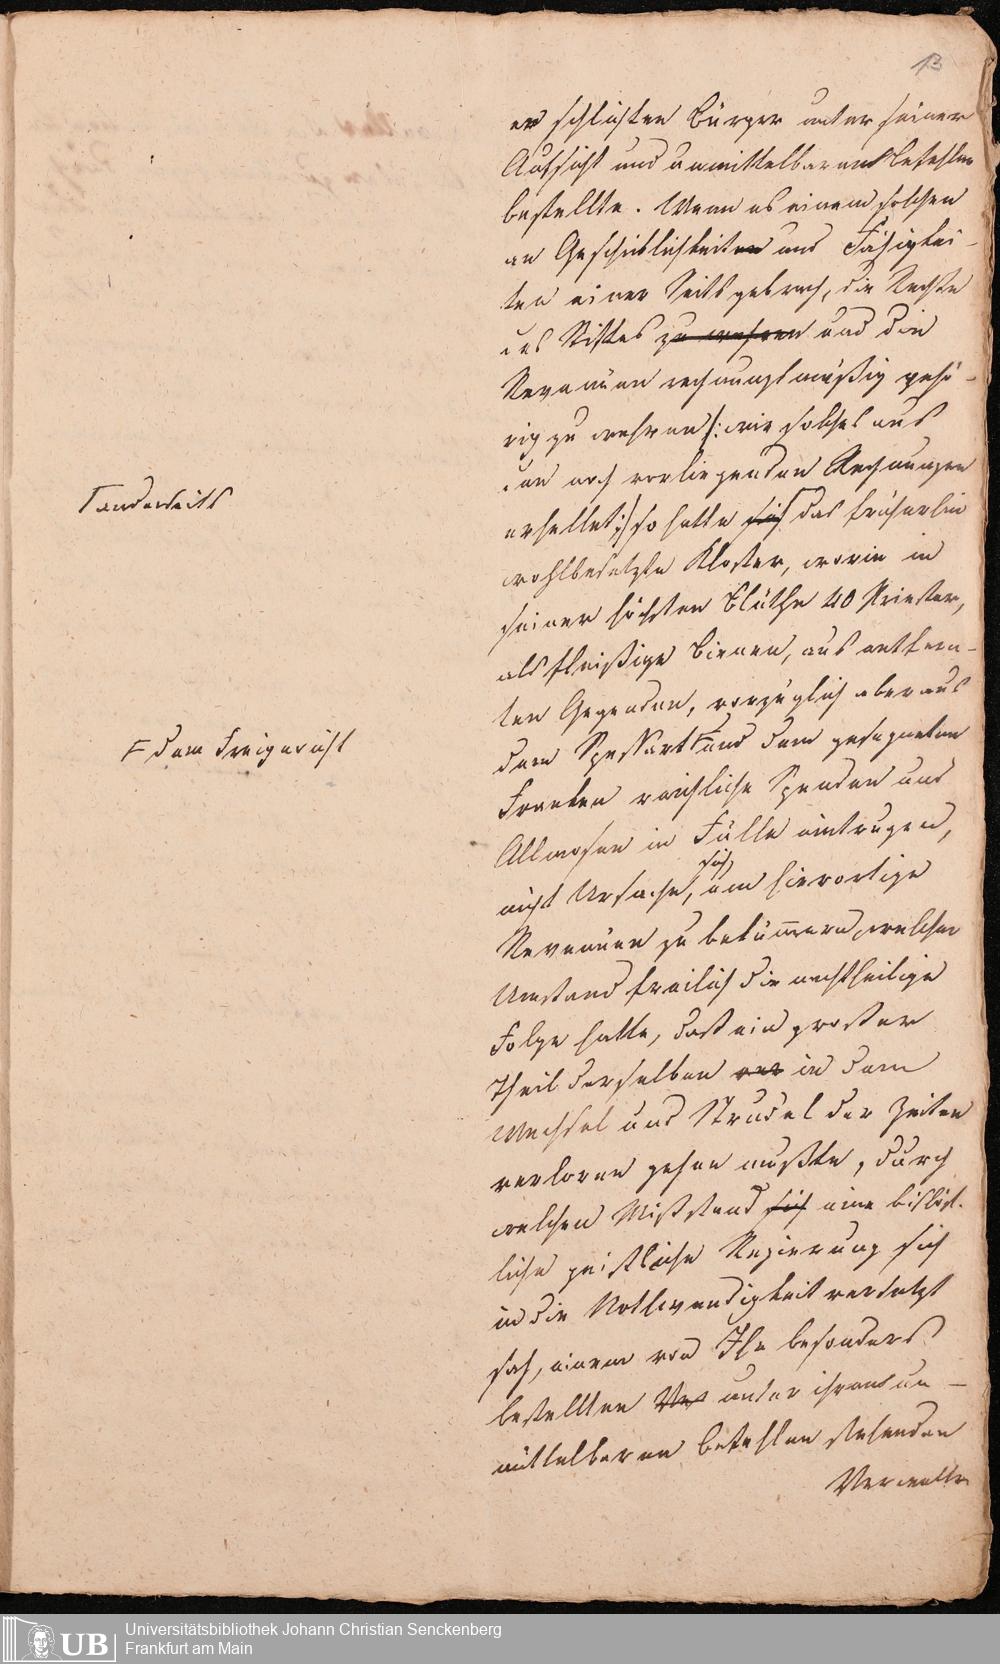 13
er schlichten Bürger unter seiner
Aufsicht und unmittelbaren Befehlen
bestellte. Wenn es einem solchen
an Geschicklichkeiten und Fähigkei-
ten einer Seits gebrach, die Rechte
des Stiftes zu wahren und die
Revenüen rechnungsmäßig gehö-
rig zu wahren /: wie solches aus
den noch vorliegenden Rechnungen
erhellet :/ so hatte sich das früherhin
wohlbesetzte Kloster, worin in
seiner höchsten Blüthe 40 Priester,
als fleißige Bienen, aus entfern-
ten Gegenden, vorzüglich aber aus
dem Spessart F und dem gesegneten
Franken reichliche Spenden und
Allmosen in Fülle eintrugen,
nicht Ursache, sich um hierortige
Revenüen zu bekümmern, welcher
Umstand freilich die nachtheilige
Folge hatte, daß ein großer
Theil derselben in dem
Wechsel und Strudel der Zeiten
verloren gehen mußte, durch
welchen Mißstand sich eine bischöf-
liche geistliche Regierung sich
in die Nothwendigkeit versetzt
sah, einem von Ihr besonders
bestellten unter ihren un-
mittelbaren Befehlen stehenden
Verwalter
Γ anderseits
F dem Freigericht
UB
Universitätsbibliothek Johann Christian Senckenberg
Frankfurt am Main